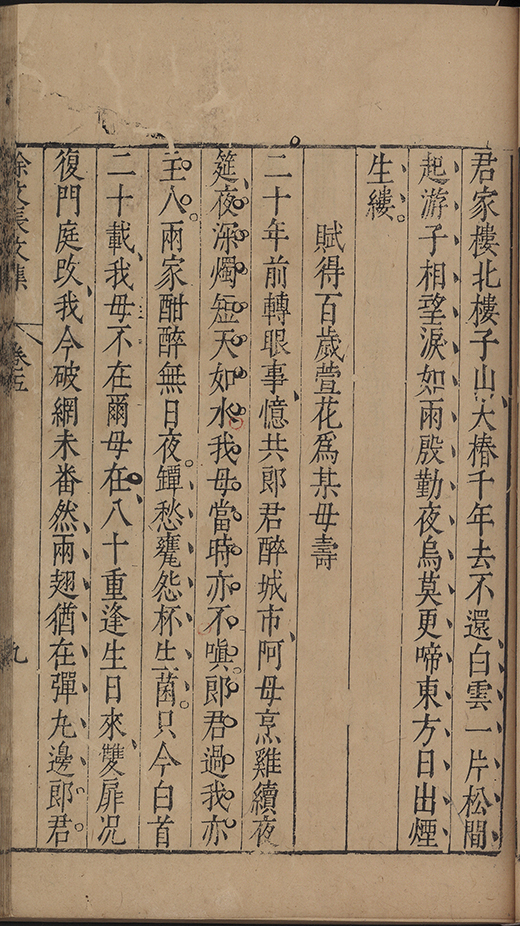 君家樓北樓子山大椿千年去不還白雲一片松間
起游子相望淚如雨殷勤夜烏莫更啼東方日出煙
生縷
賦得百歲萱花爲某母壽
二十年前轉眼事憶共郎君醉城市阿母烹雞續夜
筵夜深燭短天如水我母當時亦不嗔郎君過我亦
主人兩家酣醉無日夜鐔愁甕怨杯生菌只今白首
二十載我母不在爾母在八十重逢生日來雙扉况
復門庭改我今破網未番然兩翅猶在彈丸邊郎君
徐文長文集 卷五 九